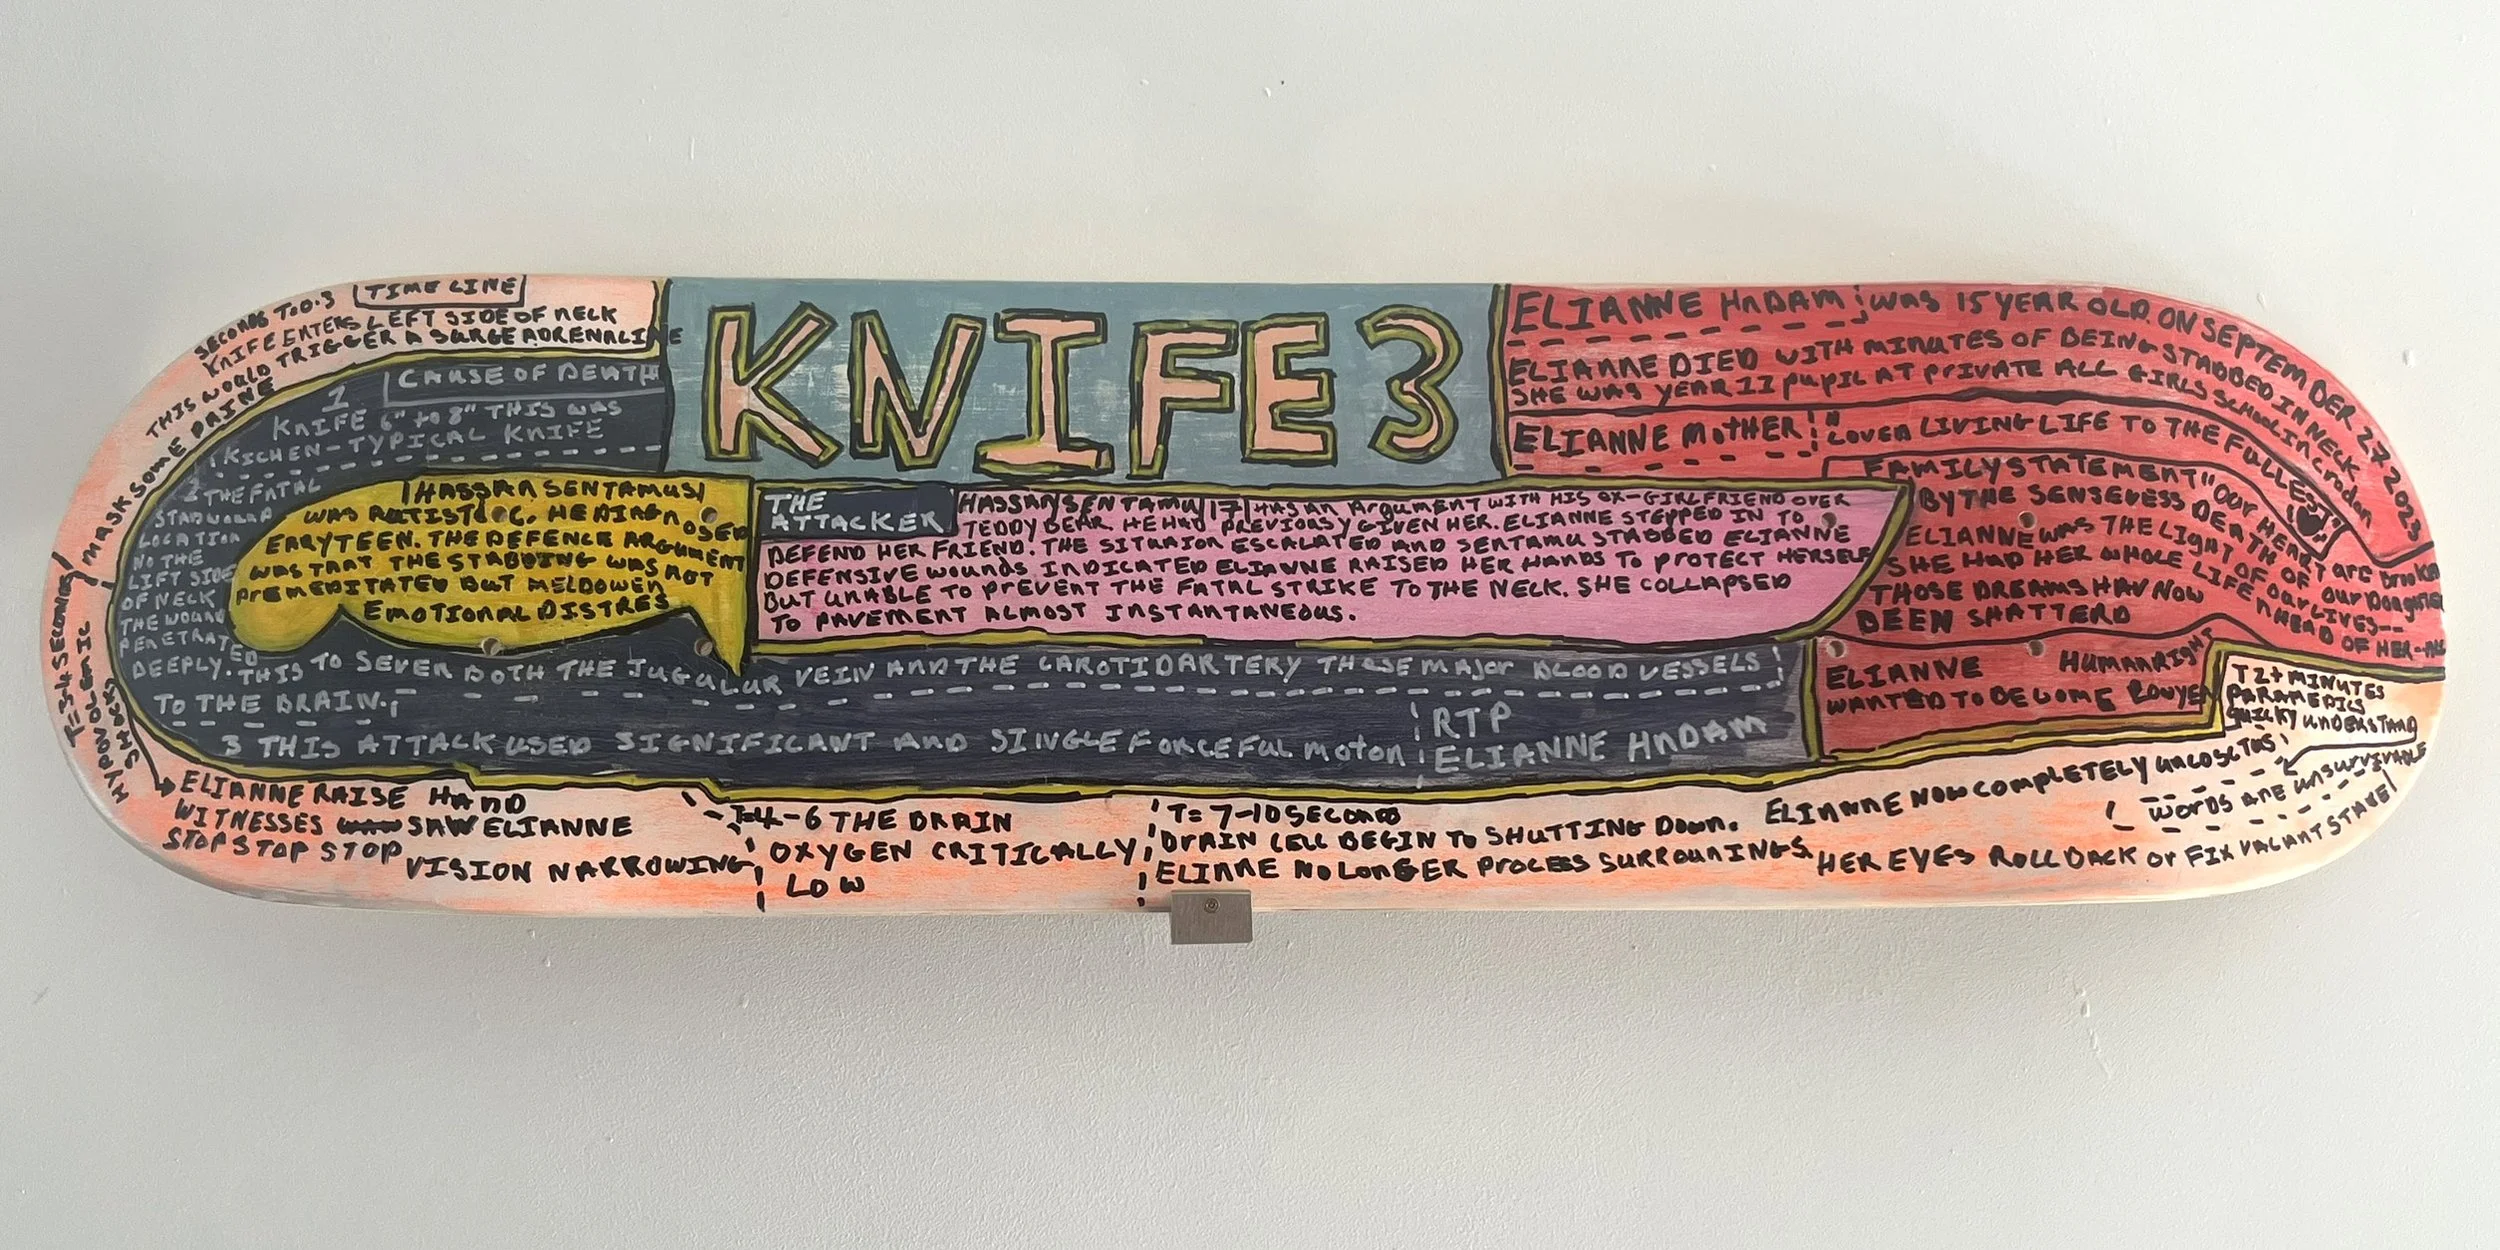 TIME LINE
SECONDS T:0.3
KNIFE ENTERS LEFT SIDE OF NECK
THIS WOULD TRIGGER A SURGE ADRENALINE
MASK SOME PAINE
T=3-4 SECONEY
HYPOVOLEMIC
SHACK
ELIANNE RAISE HAND
WITNESSES SAW ELIANNE
STOP STOP STOP
VISION NARROWING
T=4-6 THE BRAIN
OXYGEN CRITICALLY
LOW
T= 7-10 SECOND
BRAIN CELL BEGIN TO SHUTTING DOWN.
ELIANNE NO LONGER PROCESS SURROUNINGS
ELIANNE NOW COMPLETELY
HER EYES ROLL BACK OR FIX VACANT STARE
T2+ MINUTES
PARAMEDICS
QUICKY UNDERSTAND
WORDS ARE UNSURVIVABLE
1 CAUSE OF DEATH
KNIFE 6" TO 8" THIS WAS
KICHEN-TYPICAL KNIFE
2 THE FATAL
LOCATION
NO THE
LIFT SIDE
OF NECK
THE WOUND
PENETRATED
DEEPLY. THIS TO SEVER BOTH THE JUGULUR VEIN AND THE CAROTID ARTERY THOSE MAJOR BLOOD VESSELS
TO THE BRAIN.
3 THIS ATTACK USED SIGNIFICANT AND SINGLE FORCEFUL MOTON
RTP
ELIANNE HNDAM
HASSAN SENTAMUS
WAS AUTISTIC. HE DIAGNOSED
EARYTEEN. THE DEFENCE ARGUMENT
WAS THAT THE STABBING WAS NOT
PREMEDITATED BUT MELDOWEN
EMOTIONAL DISTRES
KNIFE 3
THE
ATTACKER
HASSAN SENTAMU 17 HAS AN ARGUMENT WITH HIS OX-GIRLFRIEND OVER
TEDDY BEAR HE HAD PREVIOUSY GIVEN HER. ELIANNE STEPPED IN TO
DEFEND HER FRIEND. THE SITUAION ESCALATED AND SENTAMU STABBED ELIANNE
DEFENSIVE WOUNDS INDICATED ELIANNE RAISED HER HANDS TO PROTECT HERSELF
BUT UNABLE TO PREVENT THE FATAL STRIKE TO THE NECK. SHE COLLAPSED
TO PAVEMENT ALMOST INSTANTANEOUS.
ELIANNE HNDAM WAS 15 YEAR OLD. ON SEPTEMBER 27 2023
ELIANNE DIED WITH MINUTES OF BEING STABBED IN NECK
SHE WAS YEAR 11 PUPIL AT PRIVATE ALL GIRLS SCHOOL IN CRODAN
ELIANNE MOTHER "LOVED LIVING LIFE TO THE FULLEST"
FAMILY STATEMENT "OUR HEART ARE BROKEN
BY THE SENSEVESS DEATH OF OUR DOAGHTER
ELIANNE WAS THE LIGHT OF OUR LIVES--
SHE HAD HER WHOLE LIFE AHEAD OF HER-
THOSE DREAMS HAV NOW
BEEN SHATTERD
ELIANNE HUMAN RIGHT
WANTED TO BECOME